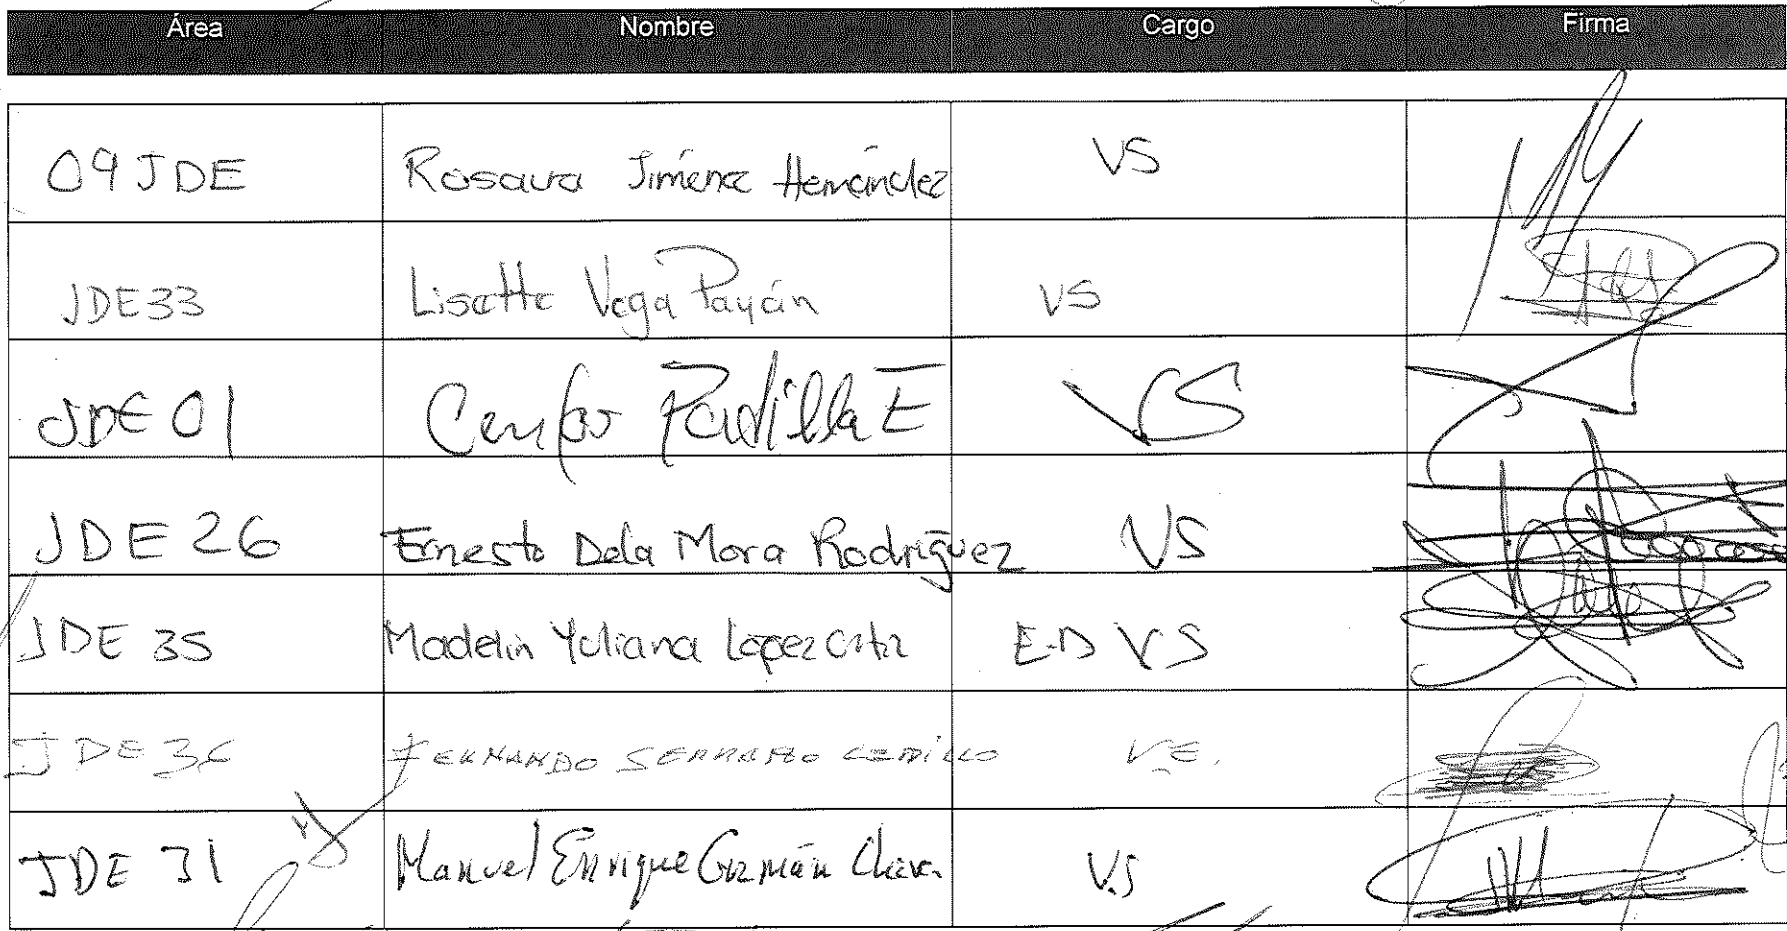 Área Nombre Cargo Firma
09 JDE Rosaura Jiménez Hernández VS
JDE33 Lisette Vega Payán VS
JDE 01 Padilla E VS
JDE 26 Ernesto De la Mora Rodríguez VS
JDE 35 Madelin Yuliana López E.D VS
JDE 36 FERNANDO SERRANO V.E.
JDE 31 Manuel Enrique Guzmán V.S